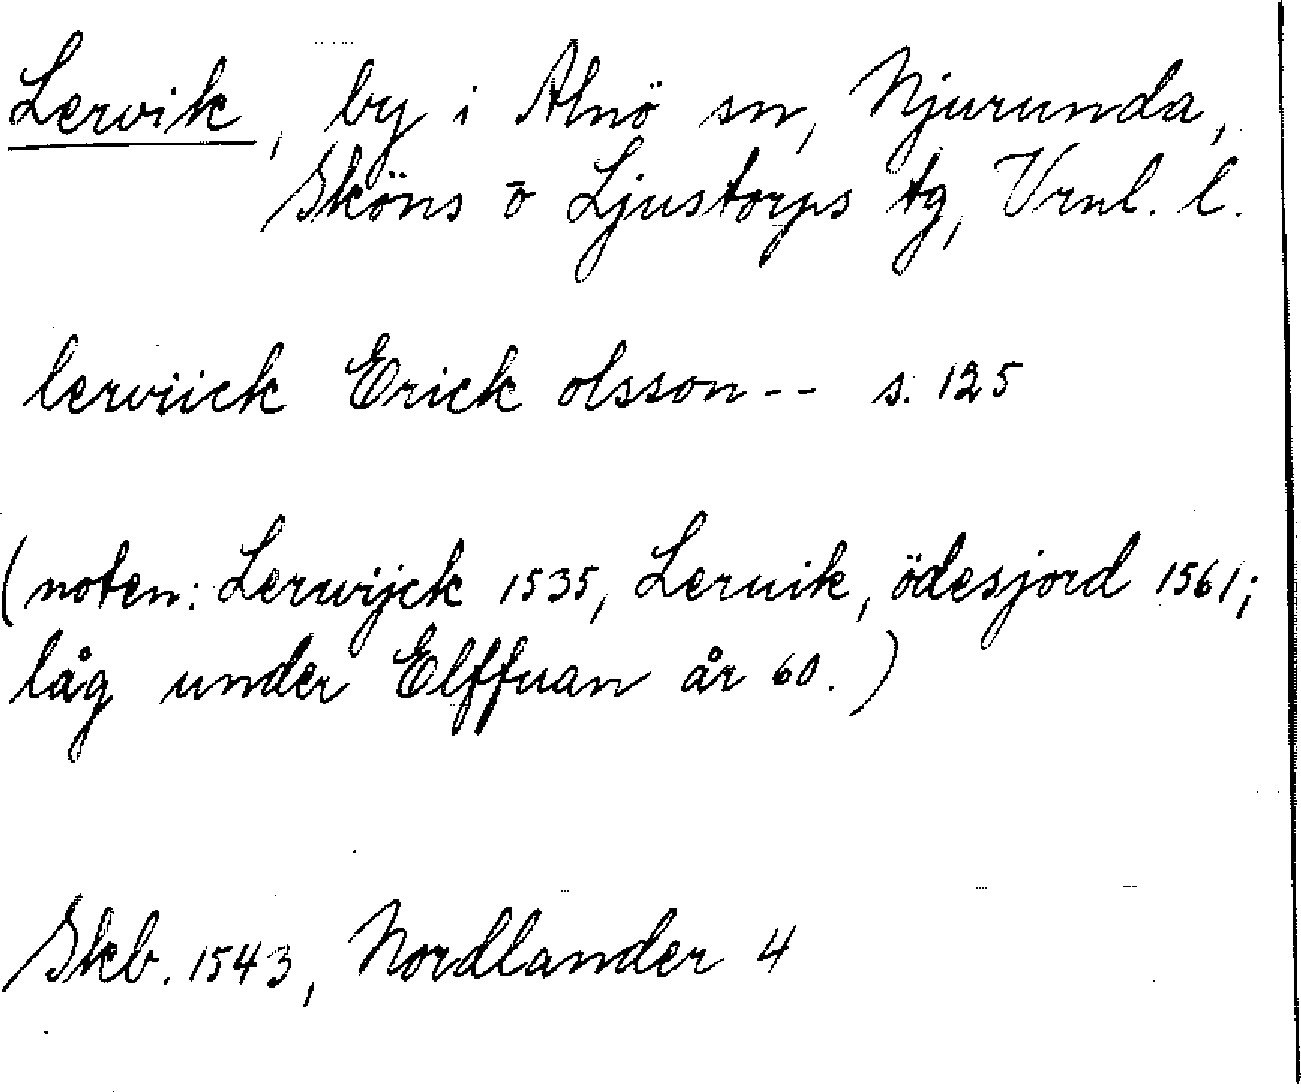 Lervik, by i Alnö sn, Njurunda,
Sköns o Ljustorps tg, Vrnl. l.
lerviick Erick olsson -- s. 125
(noten: Lerwijck 1535, Leruik, ödesjord 1561;
låg under Elffuan år 60.)
Skb. 1543, Nordlander 4